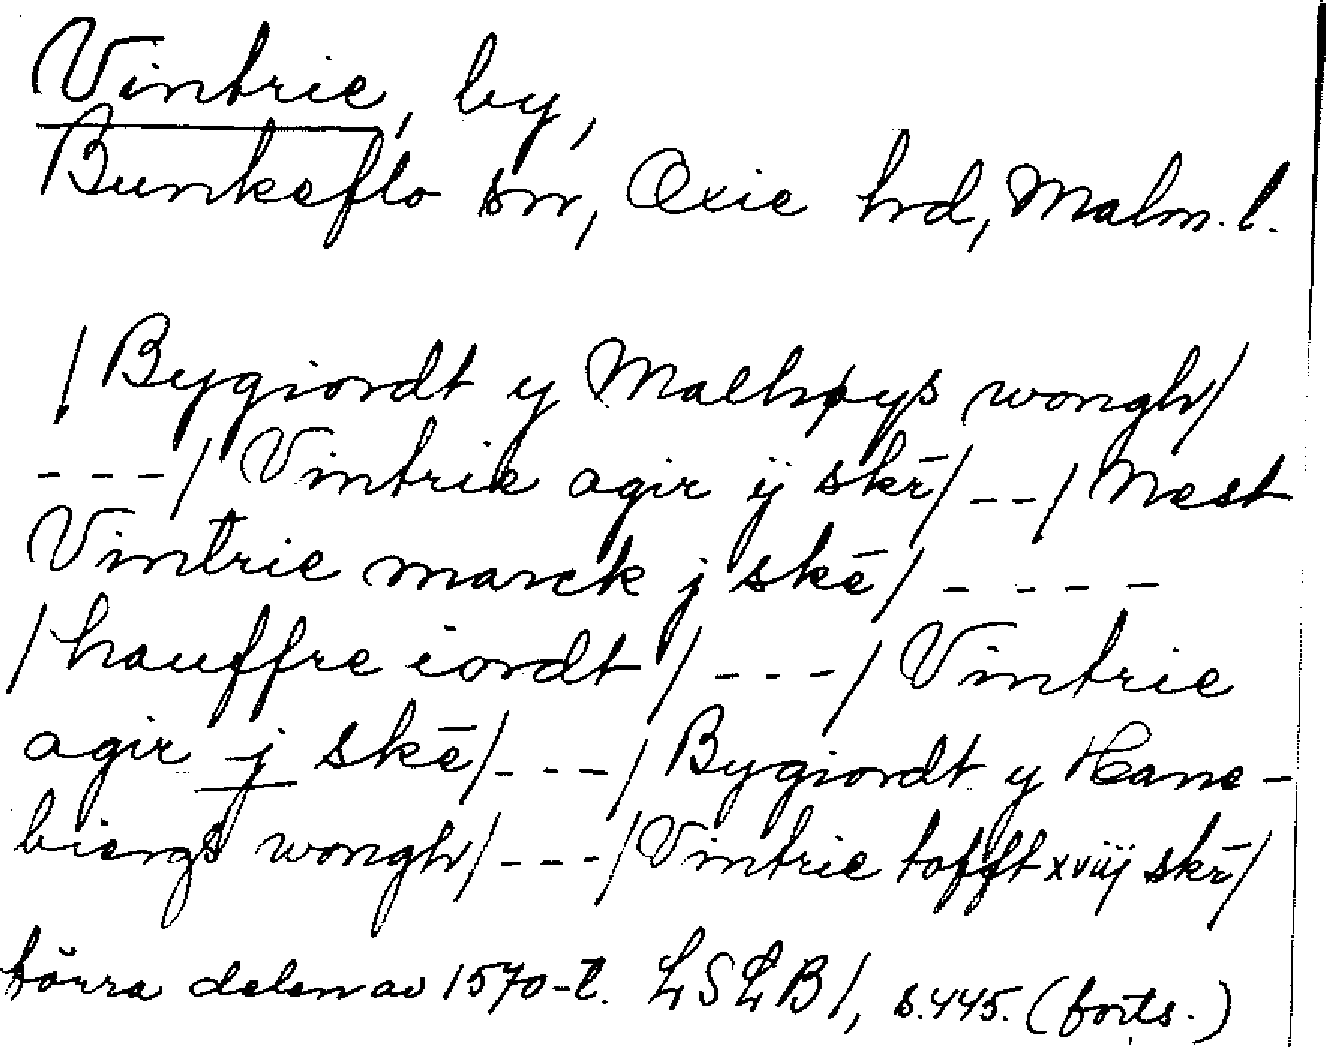 Vintrie, by,
Bunkeflo sn, Oxie hrd, Malm. l.
/Bygiordt y Malhøys wongh/
---/Vintrie agir ij skr̄/--/Nest
Vintrie marck j skē/----
/hauffre iordt/---/Vintrie
agir j skē/---/Bygiordt y Hane-
biergs wongh/---/Vintrie tofft xviij skr̄/
förra delen av 1570-t. LSLB1, s. 445. (forts.)